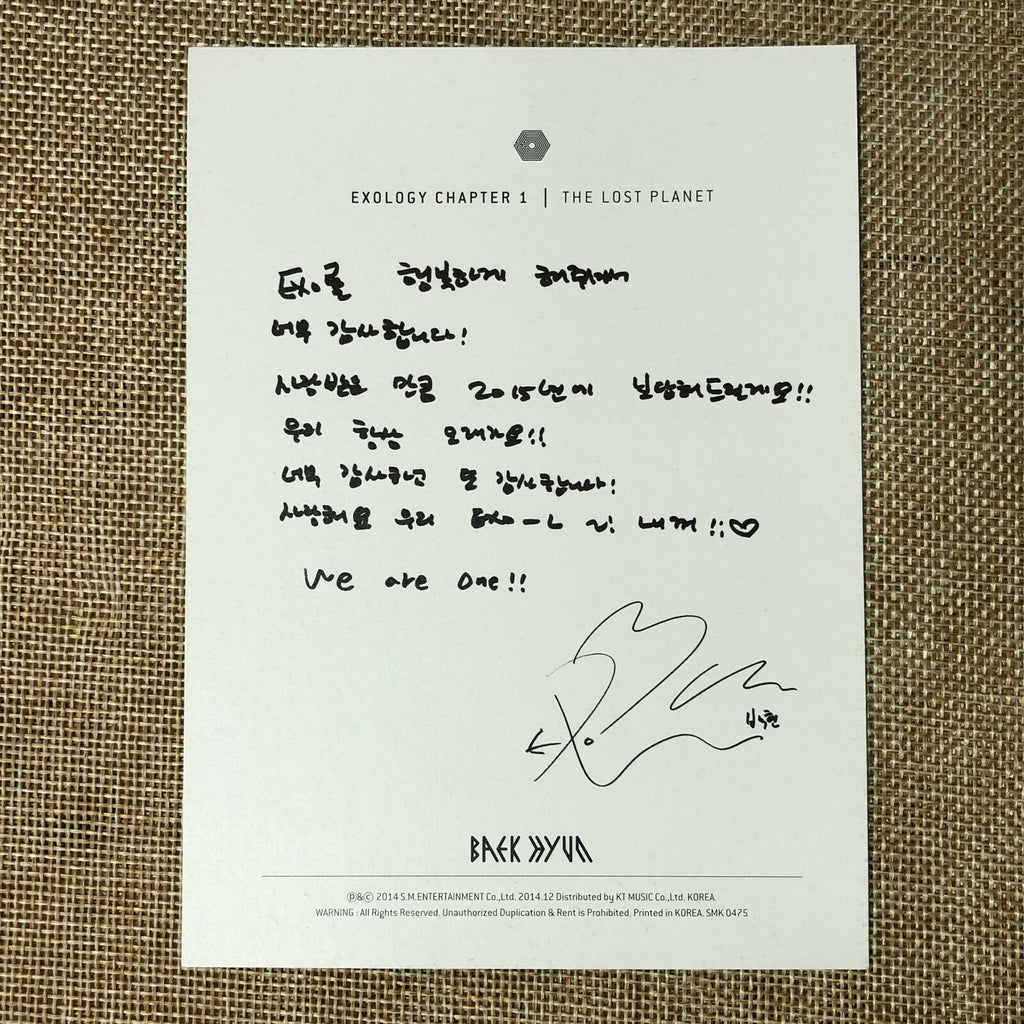 EXOLOGY CHAPTER 1 | THE LOST PLANET
EXO를 행복하게 해줘서
너무 감사합니다!
사랑받은 만큼 2015년에 보답해드릴게요!!
우리 항상 오래가요!!
너무 감사하면 또 감사합니다!
사랑해요 우리 EXO-L 내꺼!!♡
We are One!!
백현
BAEK HYUN
℗&© 2014 S.M.ENTERTAINMENT Co.,Ltd. 2014.12 Distributed by KT MUSIC Co.,Ltd. KOREA.
WARNING : All Rights Reserved. Unauthorized Duplication & Rent is Prohibited. Printed in KOREA. SMK 0475